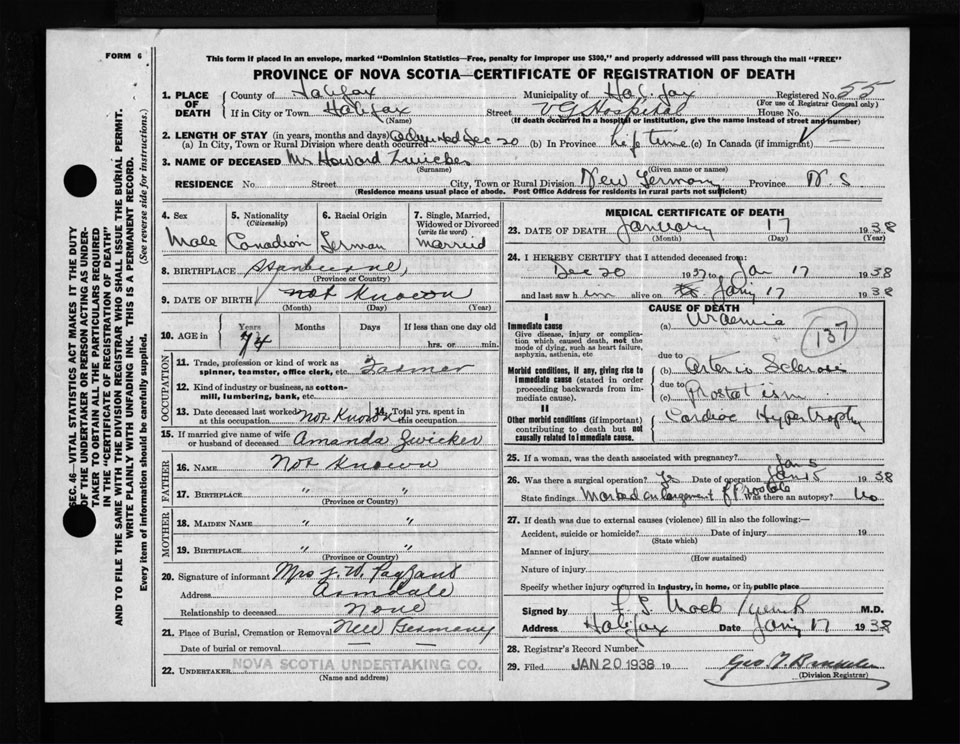 FORM 6
This form if placed in an envelope, marked "Dominion Statistics—Free, penalty for improper use $300," and properly addressed will pass through the mail "FREE"
PROVINCE OF NOVA SCOTIA—CERTIFICATE OF REGISTRATION OF DEATH
SEC. 46—VITAL STATISTICS ACT MAKES IT THE DUTY
OF THE UNDERTAKER OR PERSON ACTING AS UNDER-
TAKER TO OBTAIN ALL THE PARTICULARS REQUIRED
IN THE "CERTIFICATE OF REGISTRATION OF DEATH"
AND TO FILE THE SAME WITH THE DIVISION REGISTRAR WHO SHALL ISSUE THE BURIAL PERMIT.
WRITE PLAINLY WITH UNFADING INK. THIS IS A PERMANENT RECORD.
Every item of information should be carefully supplied. (See reverse side for instructions.)
1. PLACE OF DEATH
County of Halifax Municipality of Halifax Registered No. 55
(For use of Registrar General only)
If in City or Town Halifax Street VG Hospital House No.
(Name) (If death occurred in a hospital or institution, give the name instead of street and number)
2. LENGTH OF STAY (in years, months and days)
(a) In City, Town or Rural Division where death occurred Admitted Dec 20 (b) In Province Life time (c) In Canada (if immigrant) —
3. NAME OF DECEASED Mr Howard Zwicker
(Surname) (Given name or names)
RESIDENCE No. Street City, Town or Rural Division New Germany Province N.S
(Residence means usual place of abode. Post Office Address for residents in rural parts not sufficient)
4. Sex Male
5. Nationality (Citizenship) Canadian
6. Racial Origin German
7. Single, Married, Widowed or Divorced (write the word) Married
8. BIRTHPLACE
(Province or Country)
9. DATE OF BIRTH not known
(Month) (Day) (Year)
10. AGE in Years 74 Months Days If less than one day old
hrs. or min.
OCCUPATION
11. Trade, profession or kind of work as spinner, teamster, office clerk, etc. Farmer
12. Kind of industry or business, as cotton-mill, lumbering, bank, etc.
13. Date deceased last worked at this occupation Not Known 14. Total yrs. spent in this occupation
15. If married give name of wife or husband of deceased Amanda Zwicker
FATHER
16. NAME Not Known
17. BIRTHPLACE " "
(Province or Country)
MOTHER
18. MAIDEN NAME " "
19. BIRTHPLACE " "
(Province or Country)
20. Signature of informant Mrs J. W. Payzant
Address Armdale
Relationship to deceased None
21. Place of Burial, Cremation or Removal New Germany
Date of burial or removal — —
22. UNDERTAKER NOVA SCOTIA UNDERTAKING CO.
(Name and address)
MEDICAL CERTIFICATE OF DEATH
23. DATE OF DEATH January 17 1938
(Month) (Day) (Year)
24. I HEREBY CERTIFY that I attended deceased from:
Dec 20 1937 to Jan 17 1938
and last saw him alive on Jan'y 17 1938
CAUSE OF DEATH
I
Immediate cause
Give disease, injury or complication which caused death, not the mode of dying, such as heart failure, asphyxia, asthenia, etc
(a) Uraemia
137
due to
Morbid conditions, if any, giving rise to immediate cause (stated in order proceeding backwards from immediate cause).
(b) Arterio Sclerosis
due to
(c) Prostatism
II
Other morbid conditions (if important) contributing to death but not causally related to immediate cause.
Cardiac Hypertrophy
25. If a woman, was the death associated with pregnancy?
26. Was there a surgical operation? Yes Date of operation Jan 5 1938
State findings Marked enlargement of Prostate Was there an autopsy? No
27. If death was due to external causes (violence) fill in also the following:—
Accident, suicide or homicide? Date of injury 19
(State which)
Manner of injury
(How sustained)
Nature of injury
Specify whether injury occurred in industry, in home, or in public place
Signed by M.D.
Address Halifax Date Jan'y 17 1938
28. Registrar's Record Number
29. Filed JAN 20 1938 19
(Division Registrar)